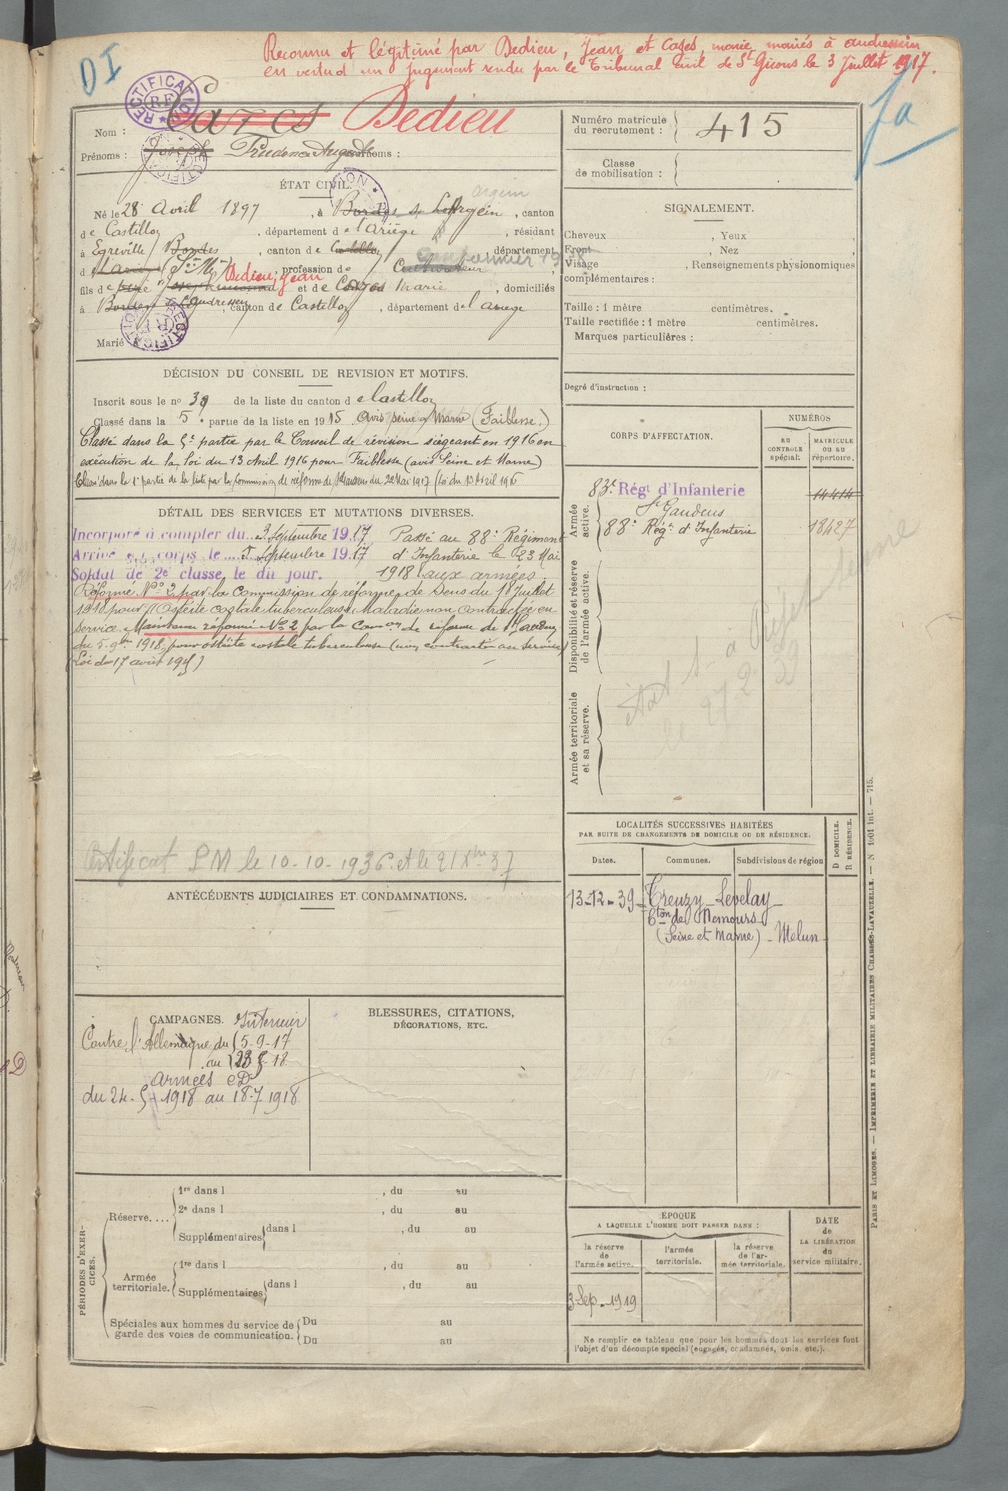 Reconnu et légitimé par Dedieu, Jean et Cazes, marie, mariés à Audressein
en vertu d'un jugement rendu par le Tribunal Civil de St Girons le 3 Juillet 1917.
DI
RECTIFICATION
R.F.
Ja
Nom : Cazes Dedieu
Prénoms : Joseph Prudence Auguste surnoms :
Numéro matricule du recrutement : 415
Classe de mobilisation :
ÉTAT CIVIL.
Né le 28 Avril 1897, à Bordes s. Lez Argein, canton
de Castillon, département de l'Ariège, résidant
à Egreville Bordes, canton de Castillon, département
d l'Ariège (S. et M.), profession de Cultivateur
fils de Dedieu Jean et de Cazes Marie, domiciliés
à Bordes Audressein, canton de Castillon, département de l'Ariège
Marié
SIGNALEMENT.
Cheveux , Yeux ,
Front , Nez ,
Visage , Renseignements physionomiques
complémentaires :
Taille : 1 mètre centimètres.
Taille rectifiée : 1 mètre centimètres.
Marques particulières :
Degré d'instruction :
DÉCISION DU CONSEIL DE REVISION ET MOTIFS.
Inscrit sous le no 39 de la liste du canton de Castillon
Classé dans la 5e partie de la liste en 1915 Avis Seine et Marne (Faiblesse.)
Classé dans la 5e partie par le Conseil de révision siégeant en 1916 en
exécution de la loi du 13 Avril 1916 pour Faiblesse (avis Seine et Marne)
Classé dans la 1e partie de la liste par la Commission de réforme de du 22 Mai 1917 (loi du 13 Avril 1916
DÉTAIL DES SERVICES ET MUTATIONS DIVERSES.
Incorporé à compter du 3 Septembre 1917 Passé au 88e Régiment
Arrivé au corps le 5 Septembre 1917 d'Infanterie le 23 Mai
Soldat de 2e classe, le dit jour. 1918 (aux armées
Réformé No 2 par la Commission de réforme de Sens du 18 Juillet
1918 pour "Ostéite costale tuberculeuse. Maladie non contractée en
service. Maintenu réformé No 2 par la Comon de réforme de St Gaudens
du 5-9bre 1918, pour ostéite costale tuberculeuse (non contractée au service)
(Loi du 17 août 1915)
Certificat P.M le 10-10-1936 et le 21 Xbre 37
CORPS D'AFFECTATION.
NUMÉROS
AU CONTROLE spécial.
MATRICULE OU AU répertoire.
Armée active.
83e Régt d'Infanterie 14414
St Gaudens
88e Régt d'Infanterie 18427
Disponibilité et réserve de l'armée active.
Armée territoriale et sa réserve.
LOCALITÉS SUCCESSIVES HABITÉES
PAR SUITE DE CHANGEMENTS DE DOMICILE OU DE RÉSIDENCE.
D DOMICILE. R RÉSIDENCE.
Dates. Communes. Subdivisions de région
13-12-39 Treuzy-Levelay
Cton de Nemours
(Seine et Marne) - Melun
ANTÉCÉDENTS JUDICIAIRES ET CONDAMNATIONS.
CAMPAGNES. Intérieur
Contre l'Allemagne du 5-9-17
au 23-5-18
Armées
du 24-5-1918 au 18-7-1918
BLESSURES, CITATIONS,
DÉCORATIONS, ETC.
PÉRIODES D'EXERCICES.
Réserve....
1re dans l , du au
2e dans l , du au
Supplémentaires dans l , du au
Armée territoriale.
1re dans l , du au
Supplémentaires dans l , du au
Spéciales aux hommes du service de garde des voies de communication.
Du au
Du au
ÉPOQUE
A LAQUELLE L'HOMME DOIT PASSER DANS :
la réserve de l'armée active.
l'armée territoriale.
la réserve de l'armée territoriale.
DATE de LA LIBÉRATION du service militaire.
3 Sep. 1919
Ne remplir ce tableau que pour les hommes dont les services font
l'objet d'un décompte spécial (engagés, condamnés, omis, etc.).
PARIS ET LIMOGES. — IMPRIMERIE ET LIBRAIRIE MILITAIRES CHARLES-LAVAUZELLE. — N 1901 int. — 715.